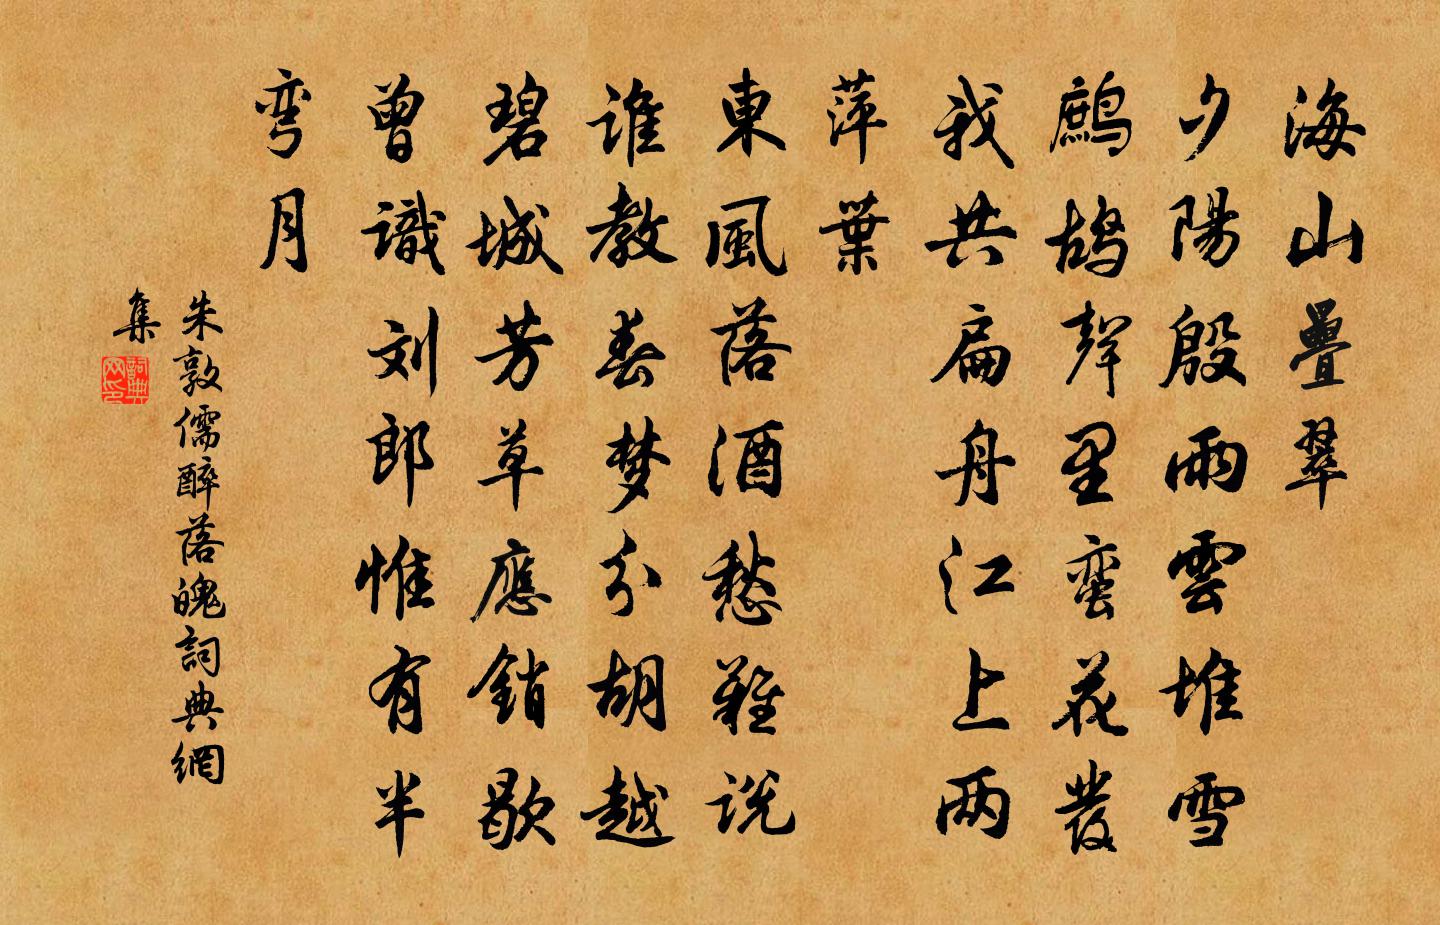 海山疊翠
夕陽殷雨雲堆雪
鷓鴣聲里蛮花發
我共扁舟江上两
萍葉
東風落酒愁難说
谁教春梦分胡越
碧城芳草應銷歇
曾識刘郎惟有半
弯月
朱敦儒醉落魄詞典網
集
詞典网印